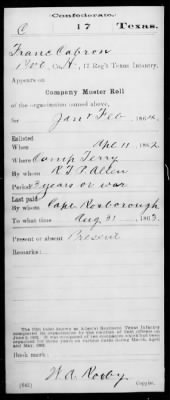 (Confederate.)
C 17 Texas.
Franc Cabron
Co. A, 17 Reg't Texas Infantry.
Appears on
Company Muster Roll
of the organization named above,
for Jan & Feb, 1864.
Enlisted:
When Apr 11, 1862
Where Camp Terry
By whom R T P Allen
Period 3 years or war
Last paid:
By whom Capt Roxborough
To what time Aug 31, 1863.
Present or absent Present
Remarks:
Book mark:
W. A. Roxby
(642) Copyist.